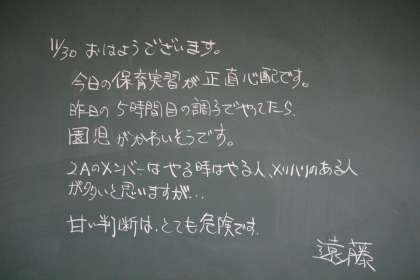 11/30 おはようございます。
今日の保育実習が正直心配です。
昨日の5時間目の調子でやってたら、
園児がかわいそうです。
2Aのメンバーはやる時はやる人、メリハリのある人
が多いと思いますが...
甘い判断は、とても危険です。
遠藤